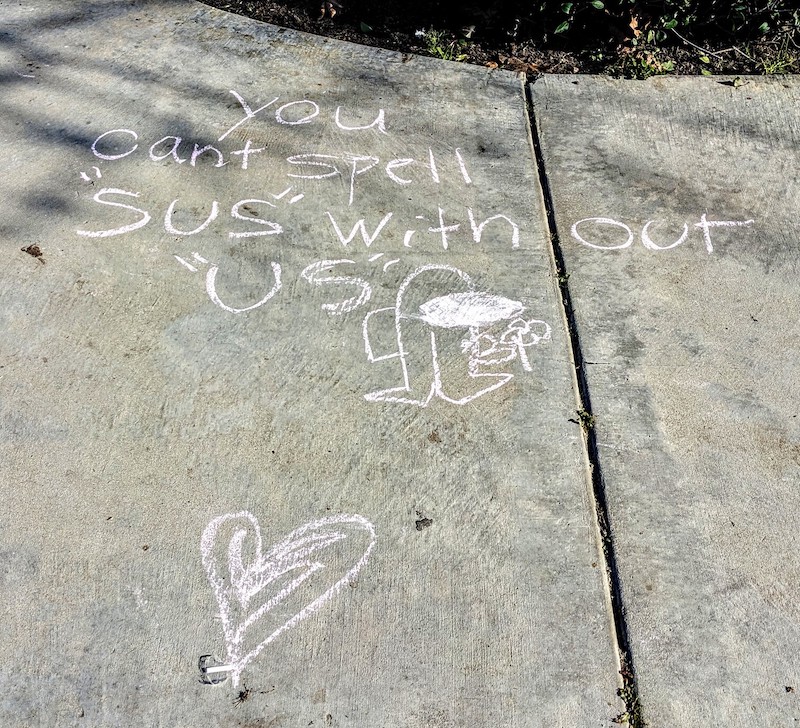 you
can't spell
"SUS" with out
"US"